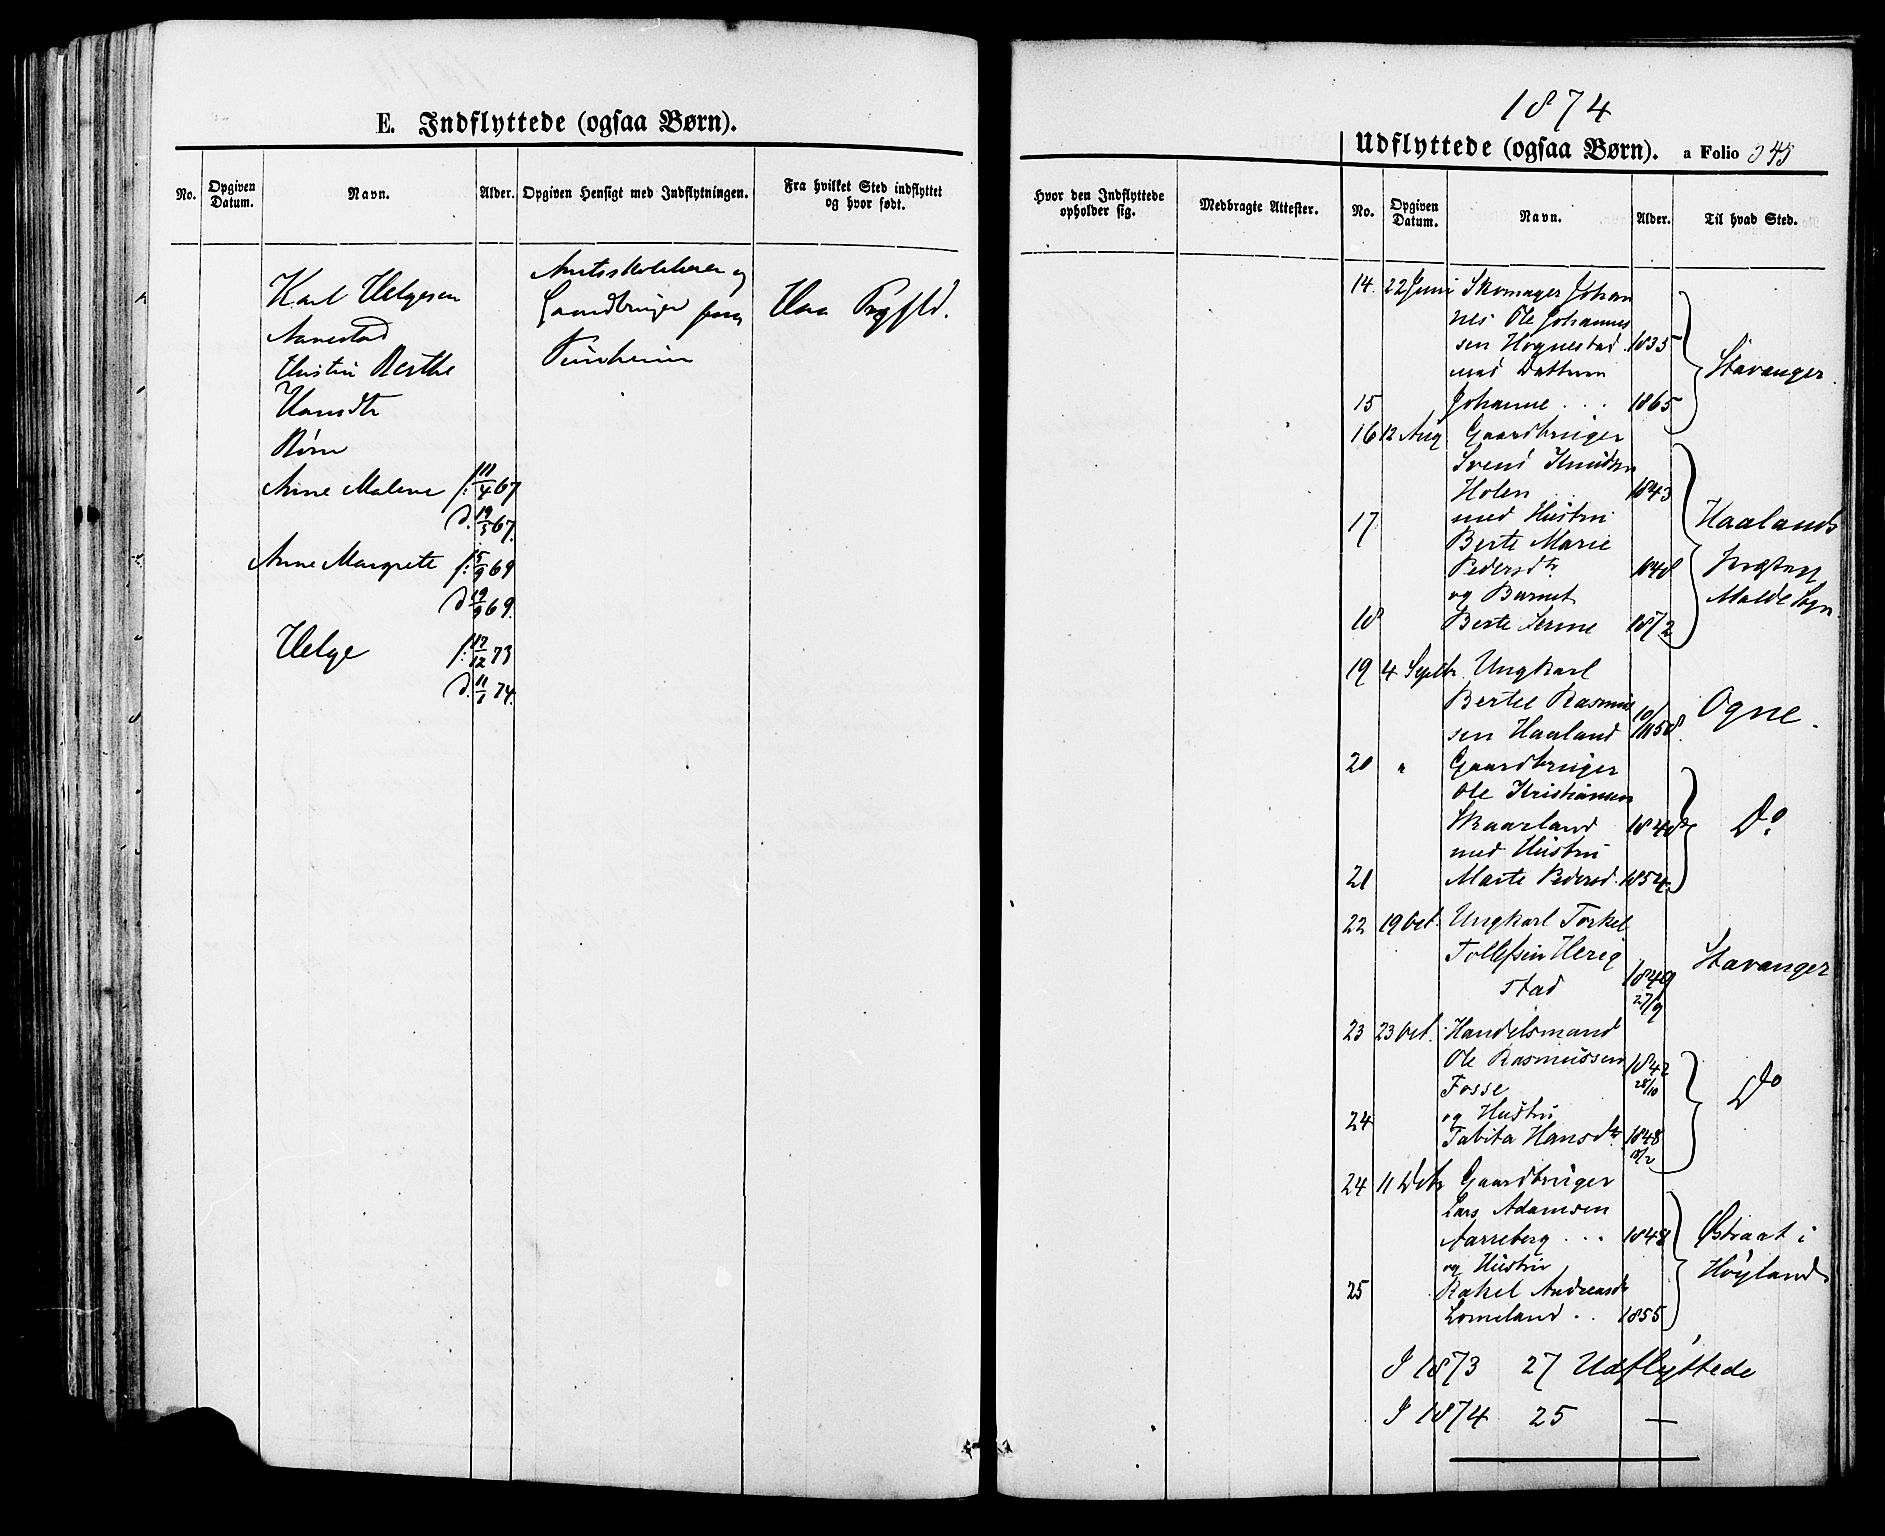 E. Indflyttede (ogsaa Børn).
No.
Opgiven Datum.
Navn.
Alder.
Opgiven Hensigt med Indflytningen.
Fra hvilket Sted indflyttet
og hvor født.
Karl Helgesen
Aarrestad
Hustru Berthe
Børn
Anne Malene f: 11/4 67
d. 19/5 67.
Anne Margrete f: 5/9 69
d. 19/9 69.
Helge f: 17/12 73
d. 11/1 74.
Gaardbruger
1874
Udflyttede (ogsaa Børn). a Folio 345
Hvor den Indflyttede
opholder sig.
Medbragte Attester.
No.
Opgiven Datum.
Navn.
Alder.
Til hvad Sted.
14. 22 Juni Skomager Johan
nes Ole Johannes
sen Hognestad 1835
med Datteren
15 Johanne . . . 1865
Stavanger.
16 12 Aug Gaardbruger
Svend Knudsen
Holen 1843
17 med Hustru
Berte Marie
Pedersdtr. 1848
og Barnet
18 Berte Serine 1872
Haalands
Malde Sogn
19 4 Septbr. Ungkarl
Bertel Rasmus
sen Haaland 10/11 58.
Ogne.
20 " Gaardbruger
Ole Kristiansen
Skaarland 1848
med Hustru
21 Marte Pedersd. 1854.
Do
22 19 Oct. Ungkarl Torkel
Tollefsen Herig
stad 1849
27/9
Stavanger
23 23 Oct. Handelsmand
Ole Rasmussen 1842
Fosse 28/10
24 og Hustru
Tabita Hansdtr. 1848
18/2
Do
24 11 Dcbr Gaardbruger
Lars Adamsen
Aarreberg . . . 1848
og Hustru
25 Rakel Andreasdr
Lomeland . . 1855
Østraat i
Høyland
I 1873 27 Udflyttede
I 1874 25 —